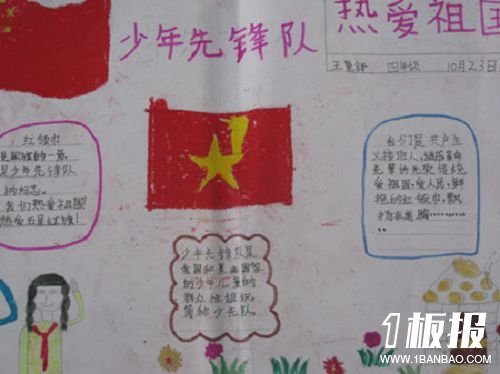 少年先锋队
热爱祖国
四年级 10月23日
红领巾
是国旗的一角,
是少年先锋队
的标志。
我们热爱祖国
热爱五星红旗!
我们是共产主
义接班人,继承革命
先辈的光荣传统
爱祖国,爱人民,鲜
艳的红领巾,飘
扬在前胸
少年先锋队是
我国和某些国家
的少年儿童的
群众性组织,
简称少先队。
1板报
WWW.1BANBAO.COM